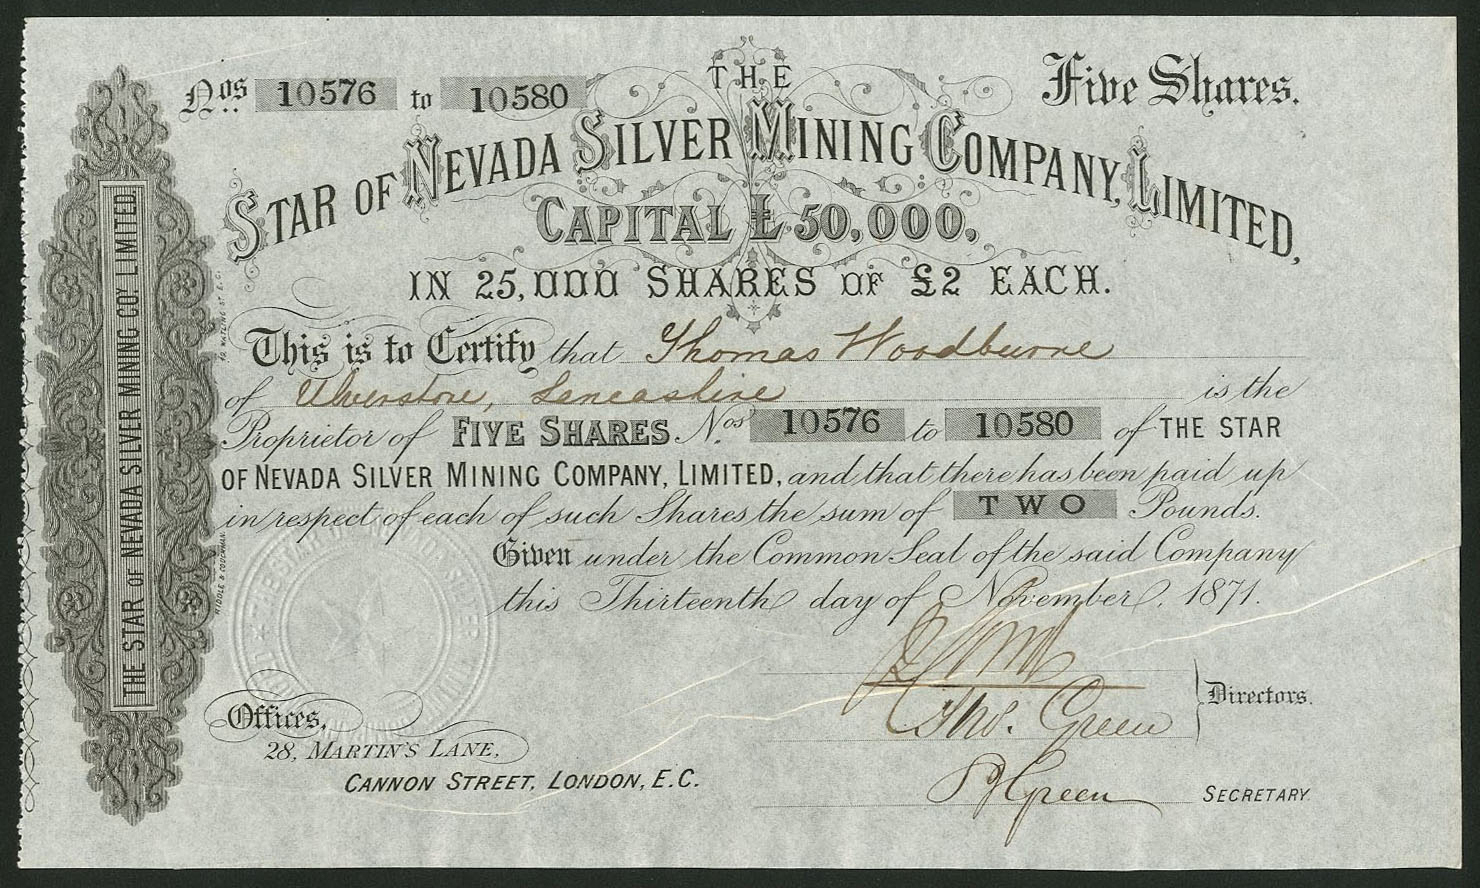 Nos. 10576 to 10580
Five Shares.
THE
STAR OF NEVADA SILVER MINING COMPANY, LIMITED,
CAPITAL £50,000,
IN 25,000 SHARES OF £2 EACH.
This is to Certify that Thomas Woodburne
of Ulverstone, Lancashire is the
Proprietor of FIVE SHARES Nos. 10576 to 10580 of THE STAR
OF NEVADA SILVER MINING COMPANY, LIMITED, and that there has been paid up
in respect of each of such Shares the sum of TWO Pounds.
Given under the Common Seal of the said Company
this Thirteenth day of November, 1871.
Thos. Green
Directors.
Green
SECRETARY
Offices,
28, MARTIN'S LANE,
CANNON STREET, LONDON, E.C.
THE STAR OF NEVADA SILVER MINING COY. LIMITED.
RIDDLE & COUCHMAN.
THE STAR OF NEVADA SILVER MINING